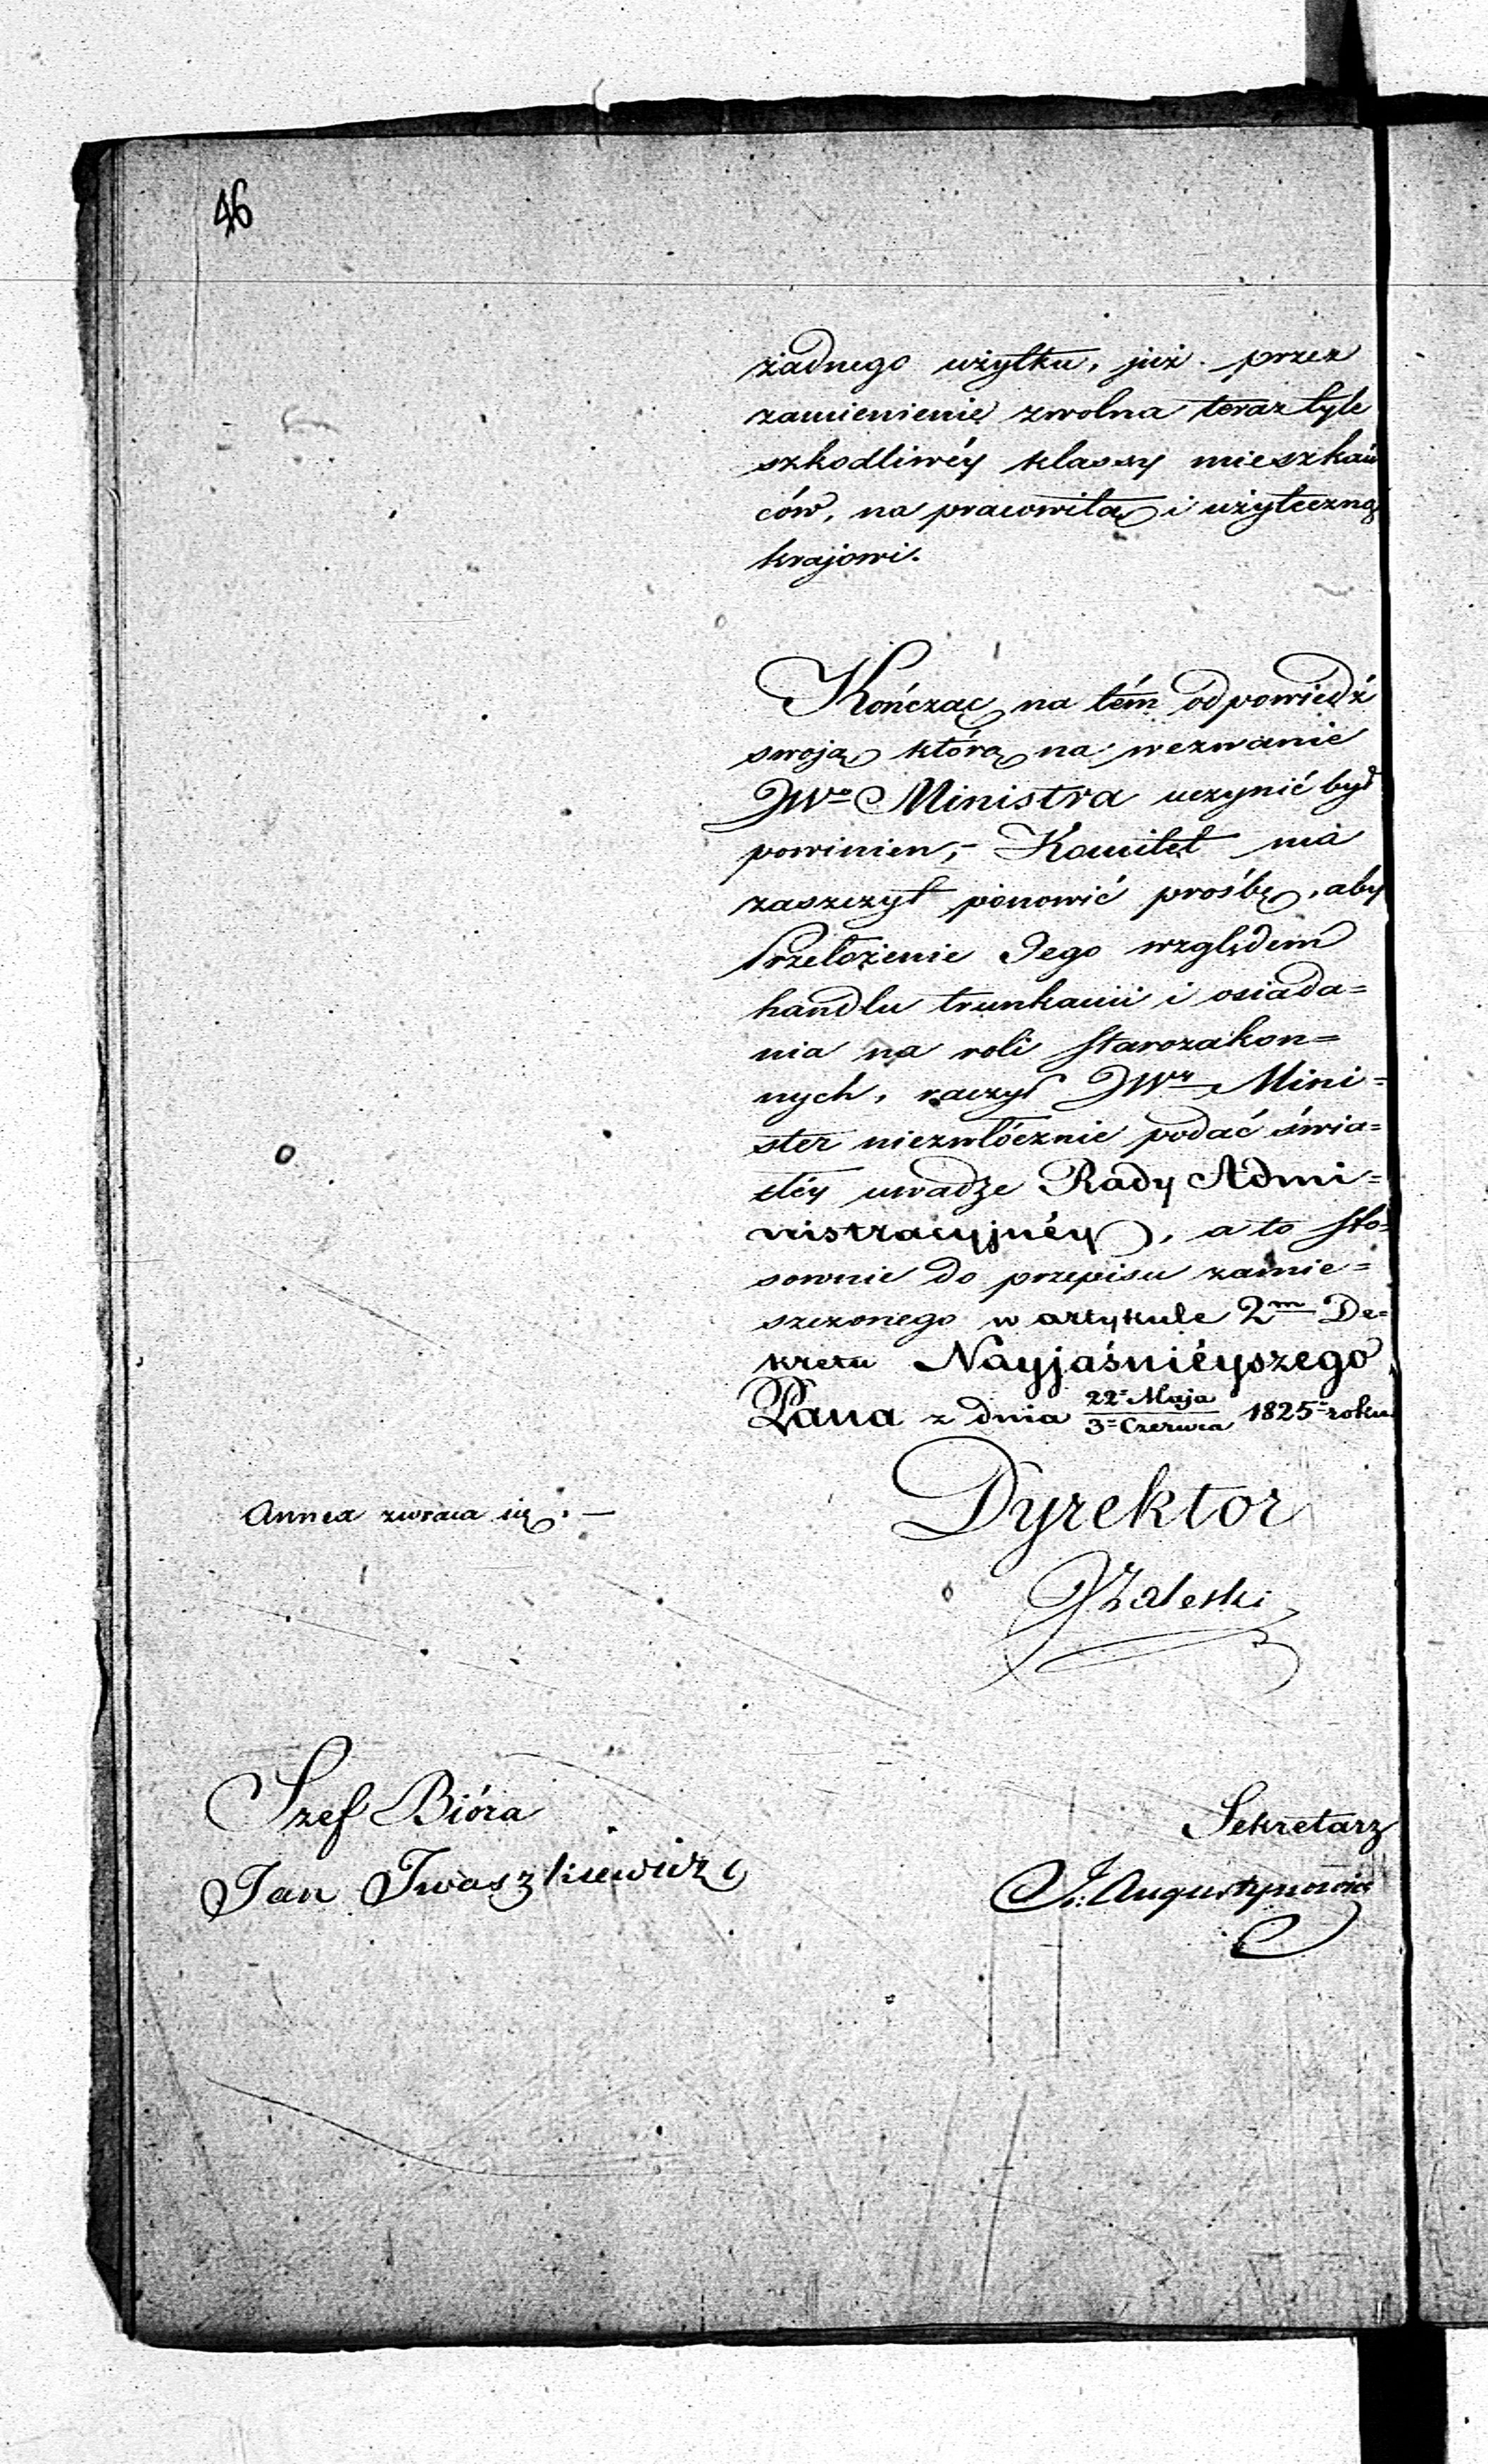 46
żadnego użytku, już przez
zamienienie zwolna teraz tyle
szkodliwéy klassy mieszkań
ców, na pracowitą i użyteczną
krajowi.
Kończąc na tém odpowiedź
swoją którą na wezwanie
JWo Ministra uczynić był
powinien, - Komitet ma
zaszczyt ponowić prośbę, aby
Przełożenie Jego względem
handlu trunkami i osiada=
nia na roli starozakon=
nych, raczył JWy Mini=
ster niezwłócznie podać świa=
tłéy uwadze Rady Admi=
nistracyjnéy, a to sto=
sownie do przepisu zamie=
szczonego w artykule 2m De=
kretu Nayjaśniéyszego
Pana z dnia 22 Maja / 3 Czerwca 1825 roku
Annex zwraca się. —
Dyrektor
Zaleski
Szef Bióra
Jan Iwaszkiewicz
Sekretarz
J. Augustynowicz